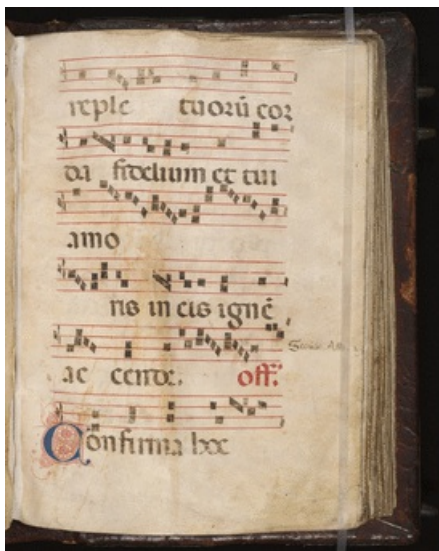 reple tuorū cor
da fidelium et tui
amo
ris in eis ignē
ac cende. off.
Confirma hoc